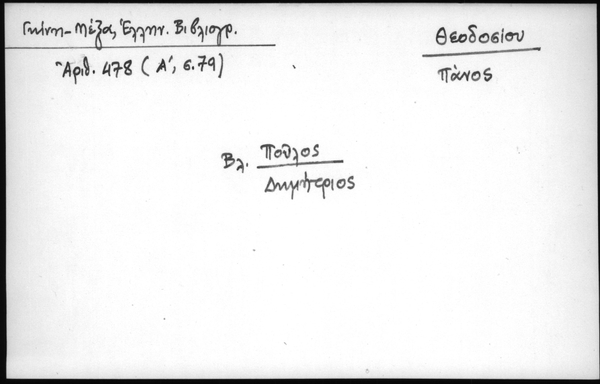 Γκίνη-Μέξα, Ἑλλην. Βιβλιογρ.
Ἀριθ. 478 (Α', σ. 79)
Θεοδοσίου
Πάνος
Βλ. Ποῦλος
Δημήτριος